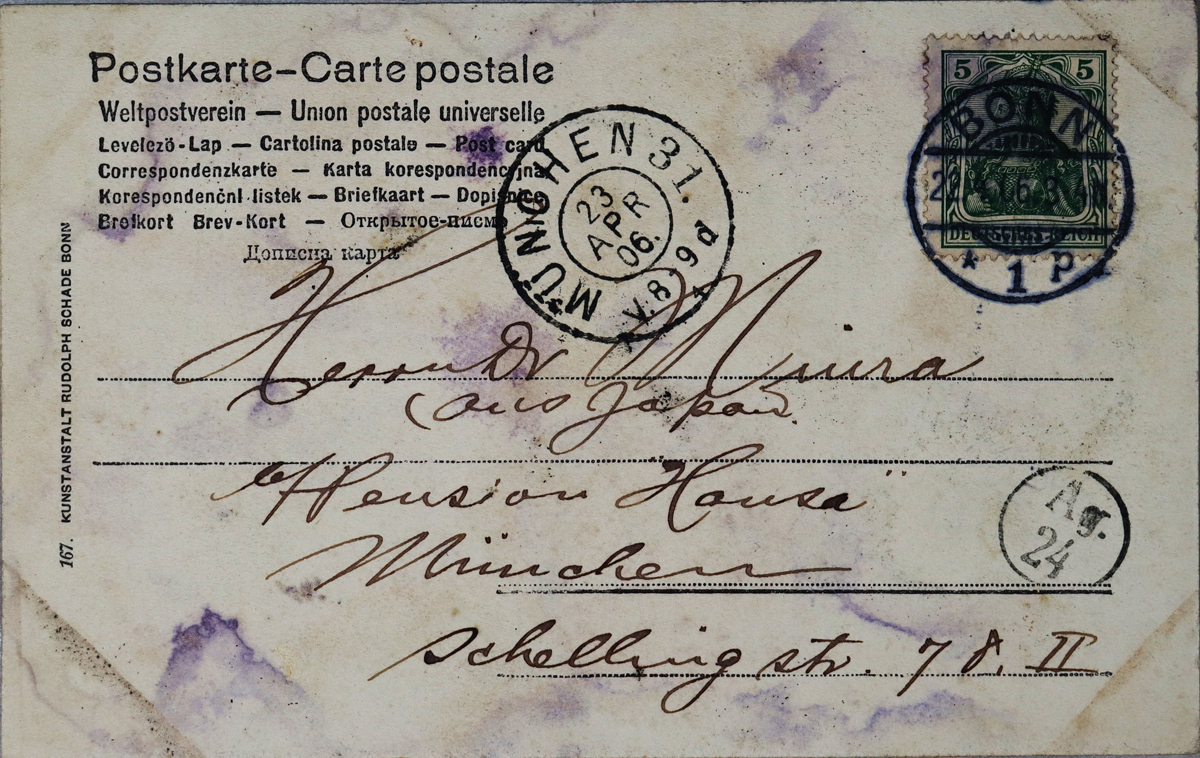 Postkarte–Carte postale
Weltpostverein — Union postale universelle
Levelezö-Lap — Cartolina postale — Post card
Correspondenzkarte — Karta korespondencyjna
Korespondenční listek — Briefkaart — Dopisnice
Brefkort Brev-Kort — Открытое-письмо
Дописна карта
167. KUNSTANSTALT RUDOLPH SCHADE BONN
MÜNCHEN 31.
23
APR
06.
V. 8-9 d
5 5
BONN
DEUTSCHES REICH
* 1 P
Herrn Dr Miura
(aus Japan
Pension "Hansa"
München
Schellingstr. 78. II
Ag.
24